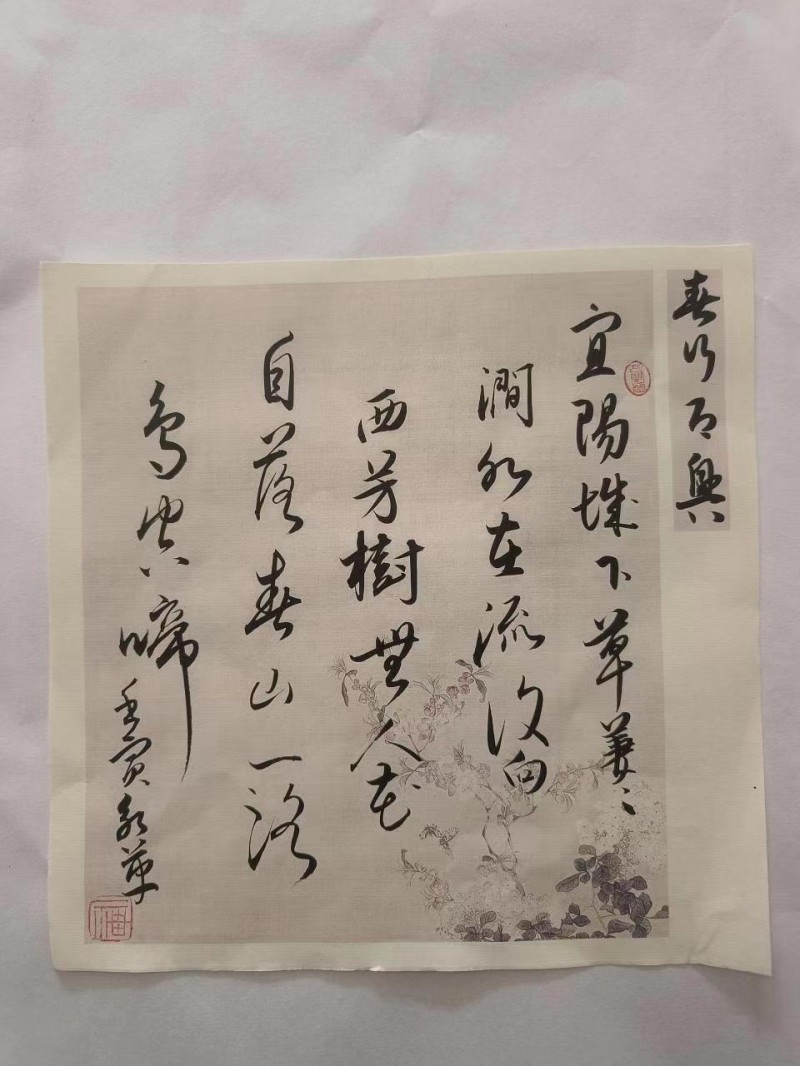 春行即興
宜陽城下草萋〻
澗水東流復向
西芳樹無人花
自落春山一路
鳥空啼 壬寅